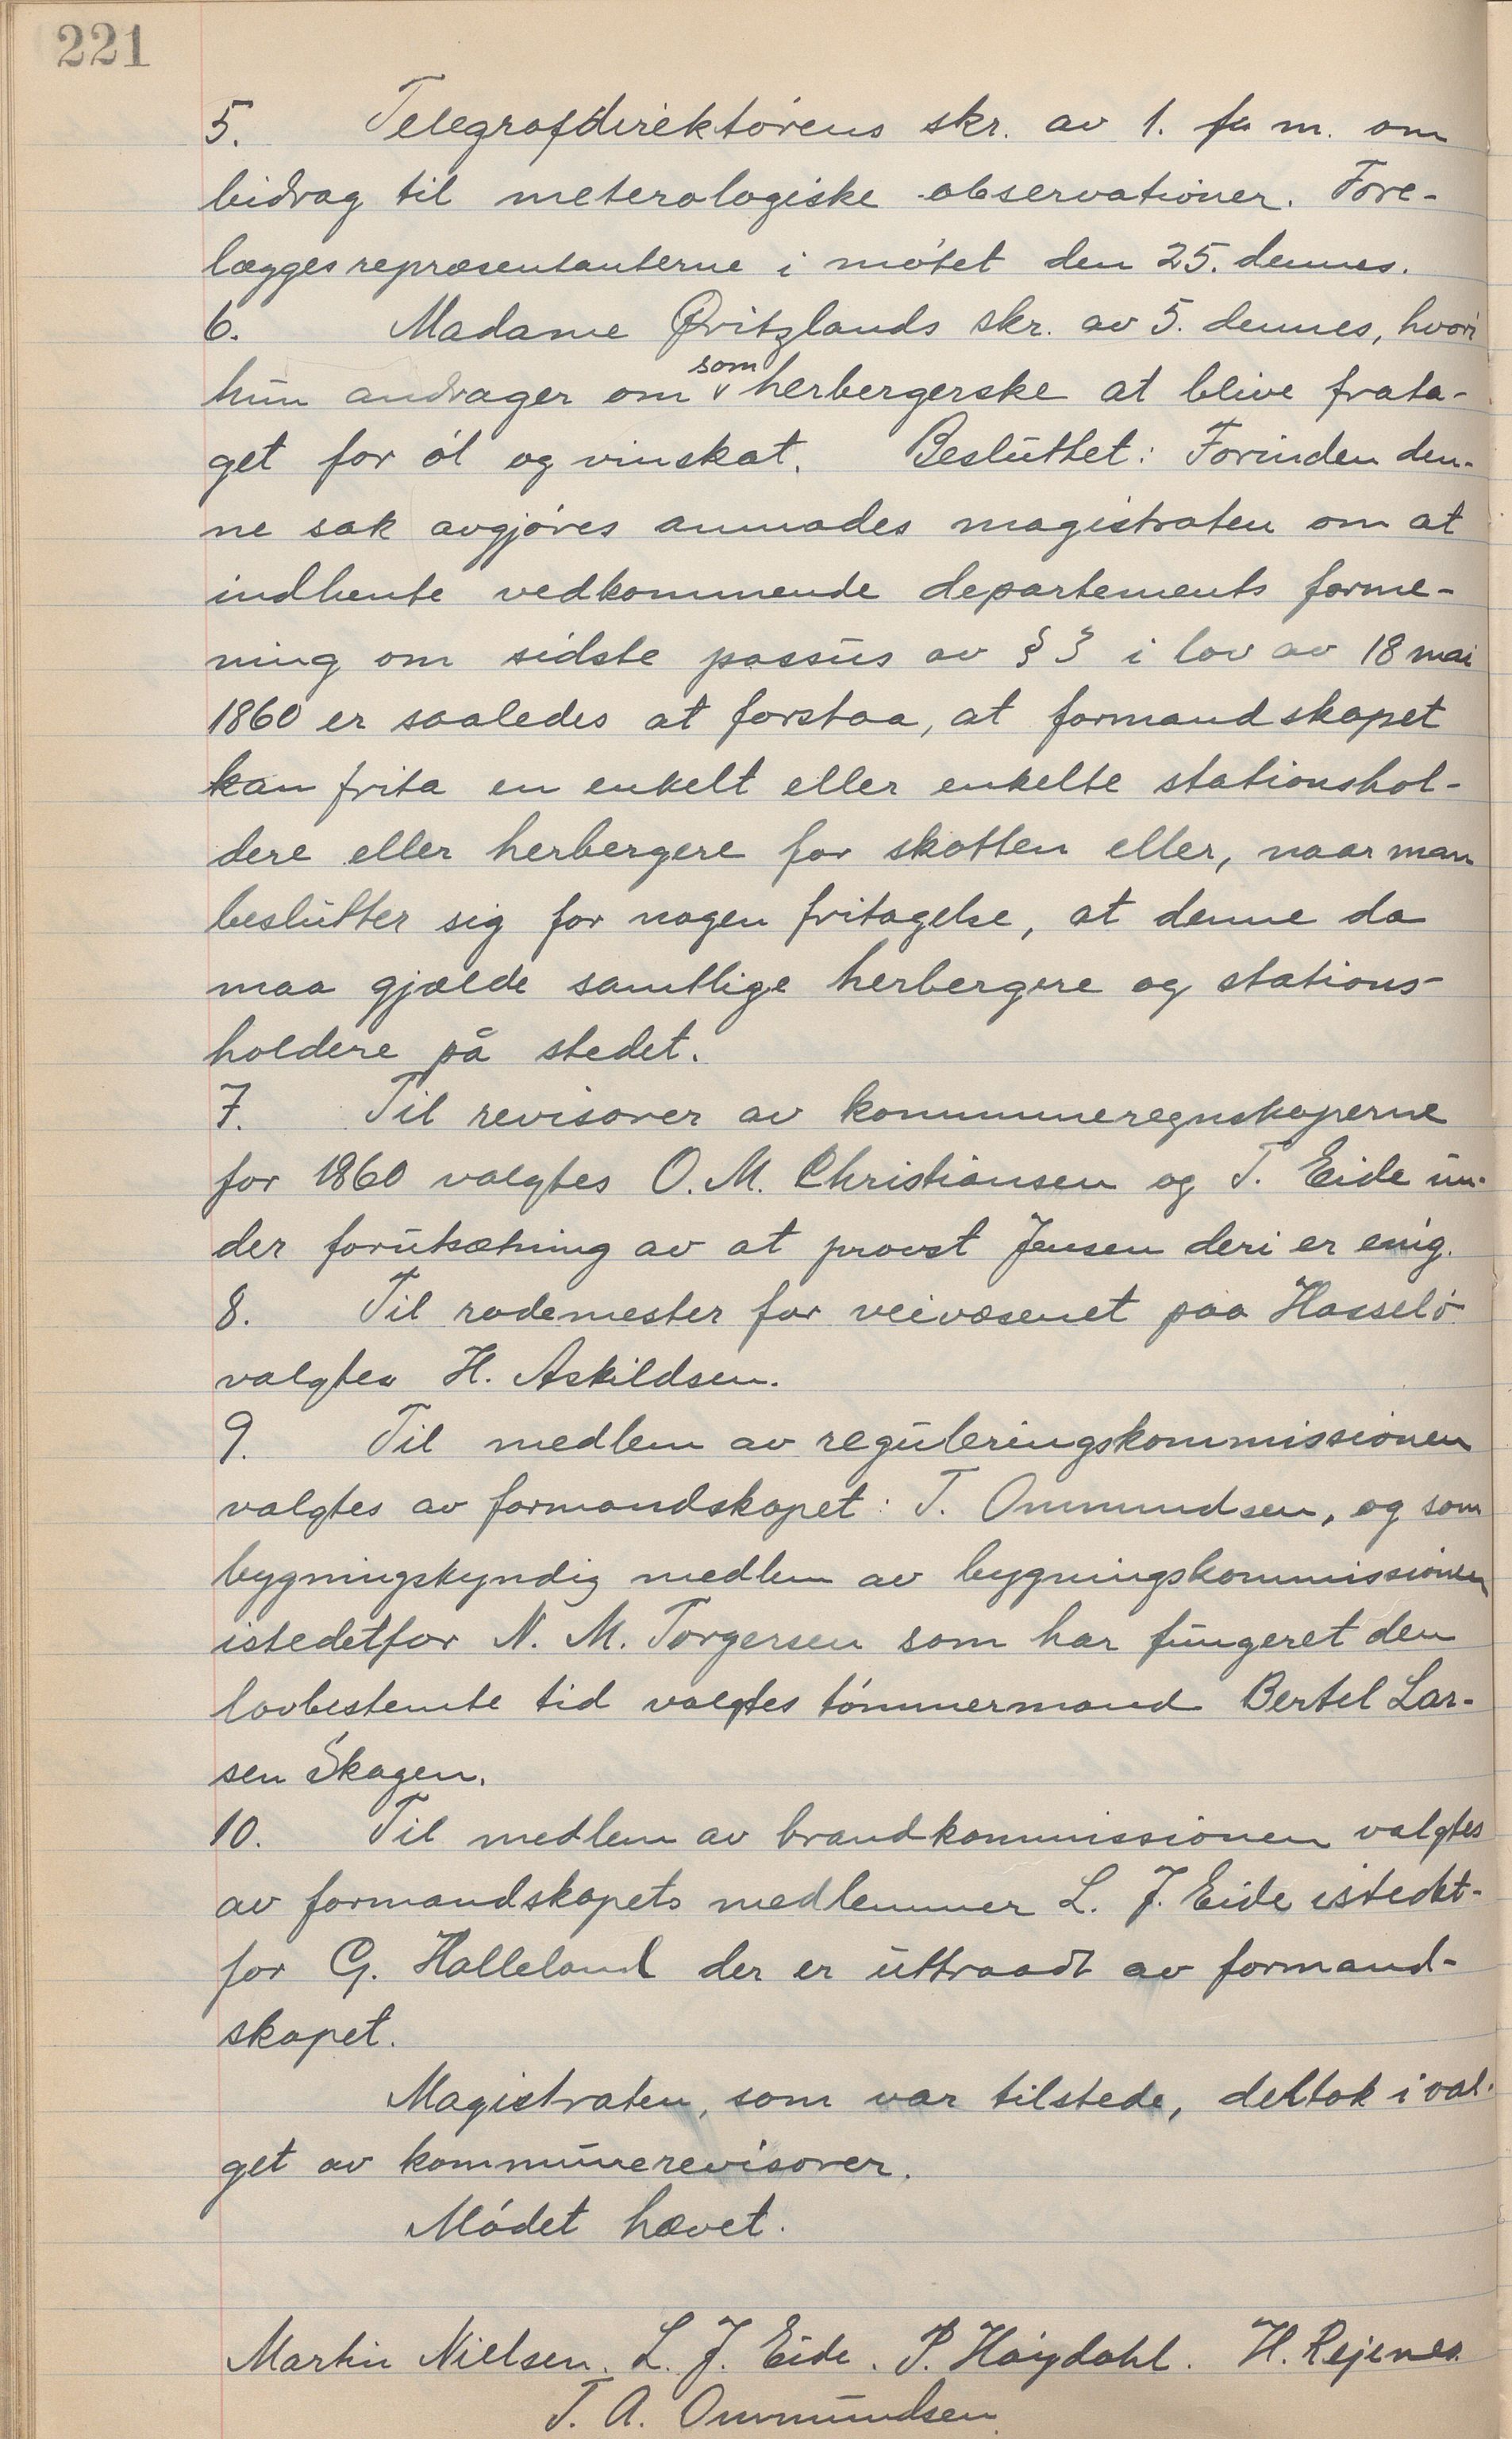 221
5. Telegrafdirektørens skr. av 1. f. m. om
bidrag til meterologiske observationer. Fore-
lægges repræsentanterne i møtet den 25. dennes.
6. Madame Qvitzlands skr. av 5. dennes, hvori
hun andrager om som herbergerske at blive frata-
get for øl og vinskat. Besluttet: Forinden den-
ne sak avgjøres anmodes magistraten om at
indhente vedkommende departements forme-
ning om sidste passus av § 3 i lov av 18 mai
1860 er saaledes at forstaa, at formandskapet
kan frita en enkelt eller enkelte stationshol-
dere eller herbergere for skatten eller, naar man
beslutter sig for nogen fritagelse, at denne da
maa gjælde samtlige herbergere og stations-
holdere på stedet.
7. Til revisorer av kommuneregnskaperne
for 1860 valgtes O. M. Christiansen og T. Eide un-
der forutsætning av at provst Jensen deri er enig.
8. Til rodemester for veivæsenet paa Hasselø
valgtes H. Askildsen.
9. Til medlem av reguleringskommissionen
valgtes av formandskapet: T. Ommundsen, og som
bygningskyndig medlem av bygningskommissionen
istedetfor N. M. Torgersen som har fungeret den
lovbestemte tid valgtes tømmermand Bertel Lar-
sen Skagen.
10. Til medlem av brandkommissionen valgtes
av formandskapets medlemmer L. J. Eide istedet-
for G. Halleland der er uttraadt av formand-
skapet.
Magistraten, som var tilstede, deltok i val-
get av kommunerevisorer.
Mødet hævet.
Martin Nielsen. L. J. Eide. P. Høydahl. H. Rejenes.
T. A. Ommundsen.